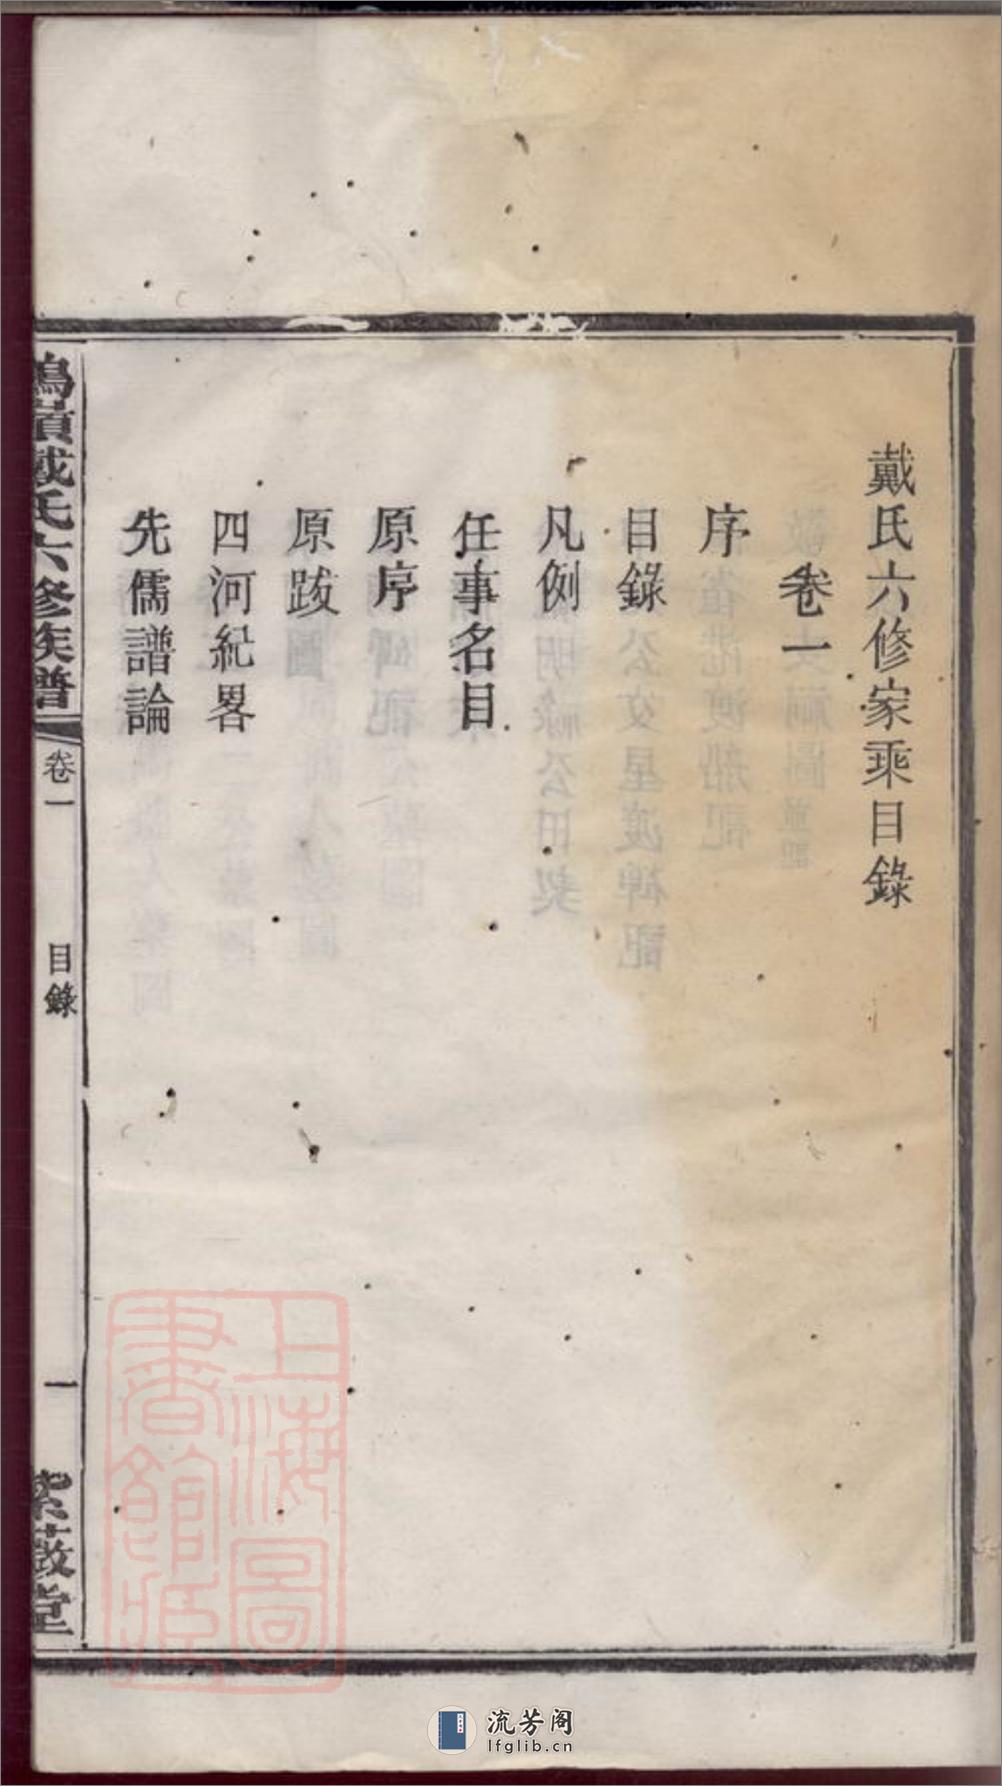 戴氏六修家乘目錄
卷一
序
目錄
凡例
任事名目
原序
原跋
四河紀畧
先儒譜論
嶺戴氏六修族譜
卷一
目錄
一
堂
上海圖
書館藏
流芳阁
lfglib.cn